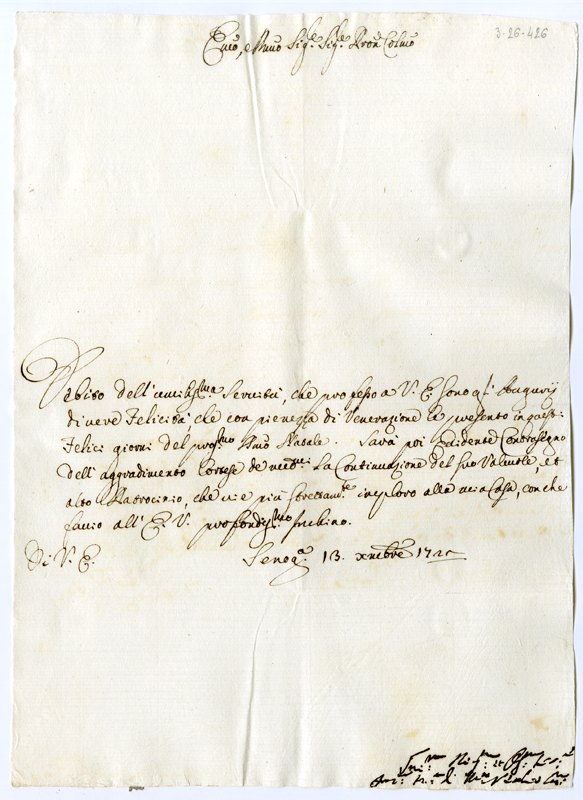 3-26-426
Emo, e Rmo Sig.re Sig.re Pron Colmo
Debito dell'umiliss.ma Servitù, che professo a V. E. sono gl'Augurij
di vere Felicità che con pienezza di Venerazione Le presento in questi
Felici giorni del pross.mo Smo Natale. Sarà poi Evidente Contrasegno
dell'aggradimento Cortese de med.mi La Continuazione del suo Valevole, et
alto Patrocinio, che vie più strettam.te imploro alla mia Casa, con che
faccio all'E. V. profondiss.mo inchino.
Di V. E. Senog.a 13. xmbre